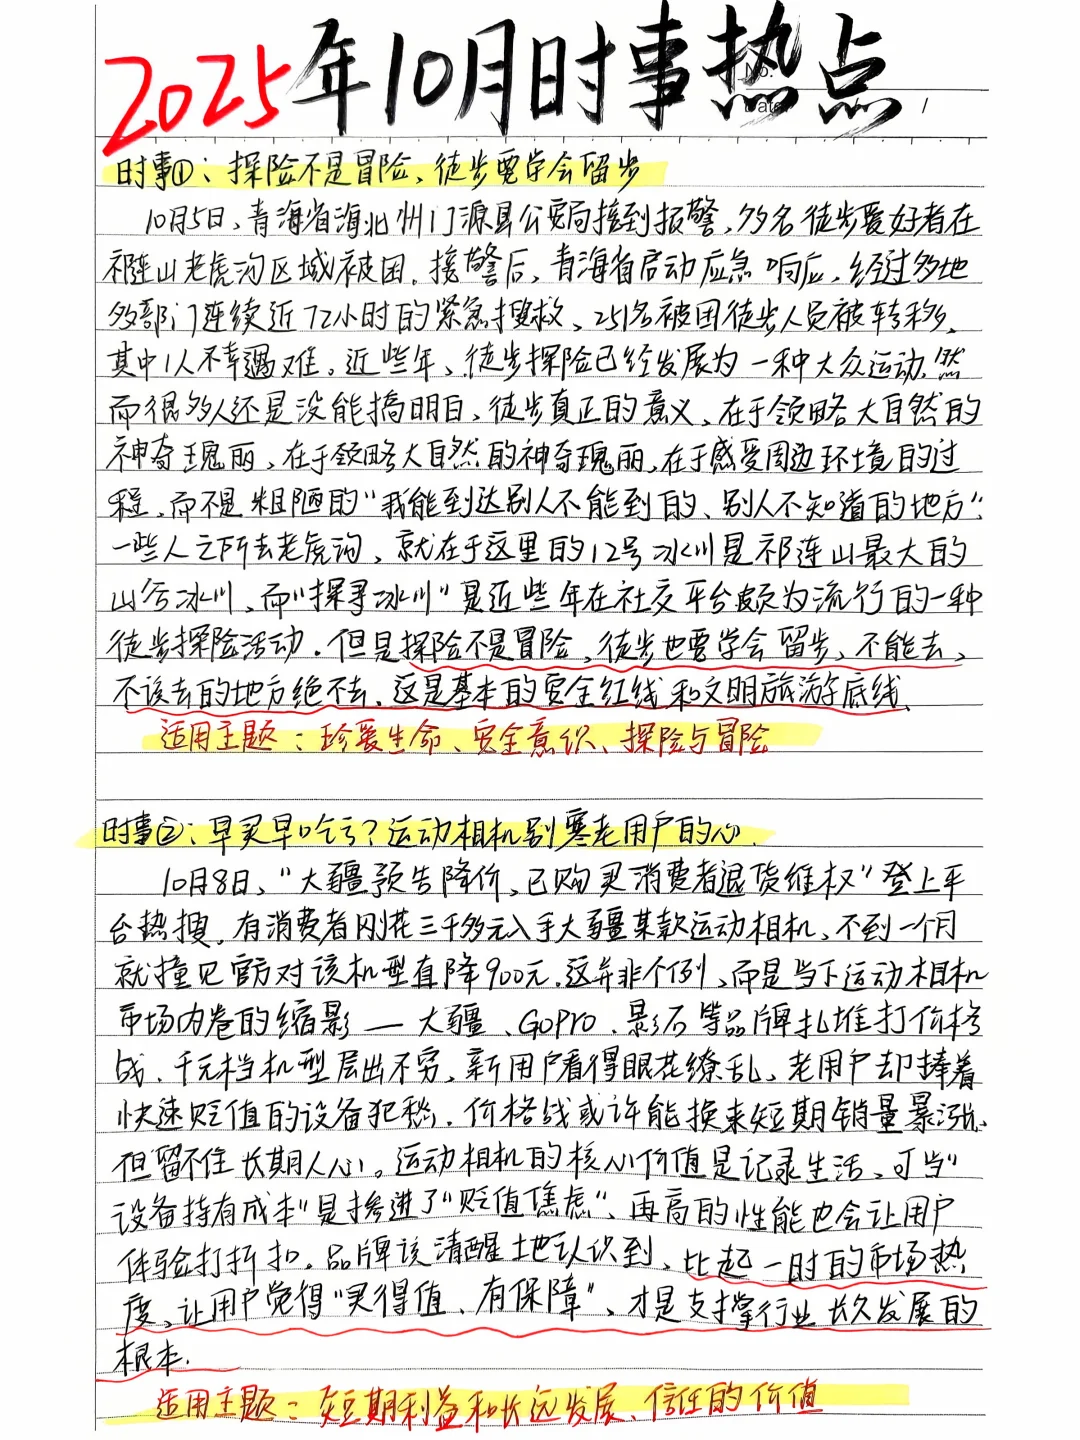 2025年10月时事热点
No.
Date.
时事①：探险不是冒险，徒步要学会留步
10月5日，青海省海北州门源县公安局接到报警，多名徒步爱好者在
祁连山老虎沟区域被困。接警后，青海省启动应急响应，经过多地
多部门连续近72小时的紧急搜救，251名被困徒步人员被转移，
其中1人不幸遇难。近些年，徒步探险已经发展为一种大众运动，然
而很多人还是没能搞明白，徒步真正的意义，在于领略大自然的
神奇瑰丽，在于领略大自然的神奇瑰丽，在于感受周边环境的过
程，而不是粗陋的"我能到达别人不能到的、别人不知道的地方"。
一些人之所去老虎沟，就在于这里的12号冰川是祁连山最大的
山谷冰川，而"探寻冰川"是近些年在社交平台颇为流行的一种
徒步探险活动。但是探险不是冒险，徒步也要学会留步，不能去、
不该去的地方绝不去，这是基本的安全红线和文明旅游底线。
适用主题：珍爱生命、安全意识、探险与冒险
时事②：早买早吃亏？运动相机别寒老用户的心
10月8日，"大疆预告降价，已购买消费者退货维权"登上平
台热搜。有消费者刚花三千多元入手大疆某款运动相机，不到一个月
就撞见官方对该机型直降900元。这并非个例，而是当下运动相机
市场内卷的缩影—大疆、GoPro、影石等品牌扎堆打价格
战，千元档机型层出不穷，新用户看得眼花缭乱，老用户却捧着
快速贬值的设备犯愁。价格战或许能换来短期销量暴涨，
但留不住长期人心。运动相机的核心价值是记录生活，可当"
设备持有成本"是掺进了"贬值焦虑"，再高的性能也会让用户
体验打折扣。品牌该清醒地认识到，比起一时的市场热
度，让用户觉得"买得值、有保障"，才是支撑行业长久发展的
根本。
适用主题：短期利益和长远发展、信任的价值